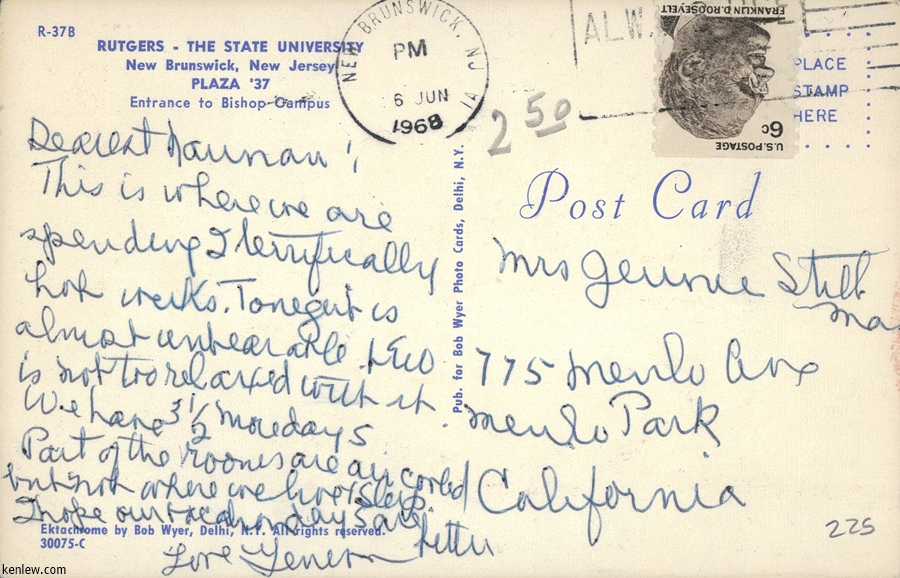 R-37B
RUTGERS - THE STATE UNIVERSITY
New Brunswick, New Jersey
PLAZA '37
Entrance to Bishop Campus
Dearest
This is where we are
spending 2 terrifically
hot weeks. Tonight is
almost unbearable &
is not too relaxed with it
We have 3 1/2 more days
Part of the rooms are air cooled
but not where we live & sleep.
I hope our vacation days are
better
Love
Ektachrome by Bob Wyer, Delhi, N.Y. All rights reserved.
30075-C
Pub. for Bob Wyer Photo Cards, Delhi, N.Y.
NEW BRUNSWICK, NJ
PM
6 JUN
1968
1A
ALW
2 50
FRANKLIN D. ROOSEVELT
6c
U.S. POSTAGE
PLACE
STAMP
HERE
Post Card
Mrs Jennie
775 Menlo Ave
Menlo Park
California
225
kenlew.com